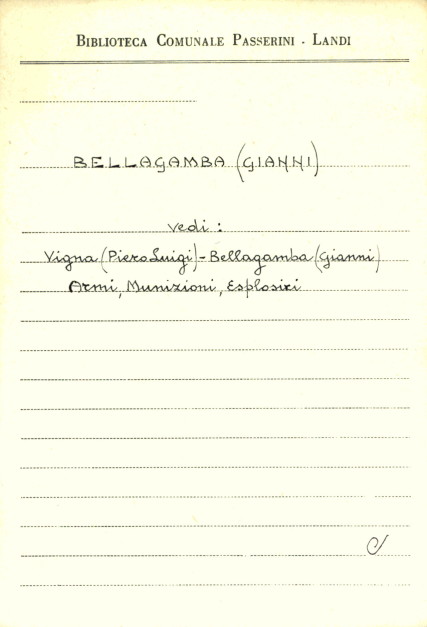 BIBLIOTECA COMUNALE PASSERINI - LANDI
BELLAGAMBA (GIANNI)
vedi :
Vigna (Piero Luigi) - Bellagamba (Gianni)
Armi, Munizioni, Esplosivi